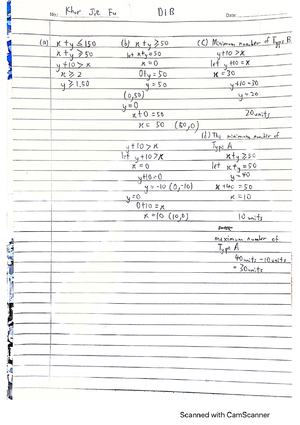 No: Khor Jie Fu D1B Date:
(a) x + y ≤ 150
x + y ≥ 50
y + 10 > x
x ≥ 2
y ≥ 1.50
(b) x + y ≥ 50
let x + y = 50
x = 0
0 + y = 50
y = 50
(0,50)
y = 0
x + 0 = 50
x = 50 (50,0)
y + 10 > x
let y + 10 = x
x = 0
y + 10 = 0
y = -10 (0,-10)
y = 0
0 + 10 = x
x = 10 (10,0)
(c) Minimum number of Type B
y + 10 > x
let y + 10 = x
x = 30
y + 10 = 30
y = 20
20 units
(d) The minimum number of
Type A
x + y ≥ 50
let x + y = 50
y = 40
x + 40 = 50
x = 10
10 units
maximum number of
Type A
40 units - 10 units
= 30 units
Scanned with CamScanner